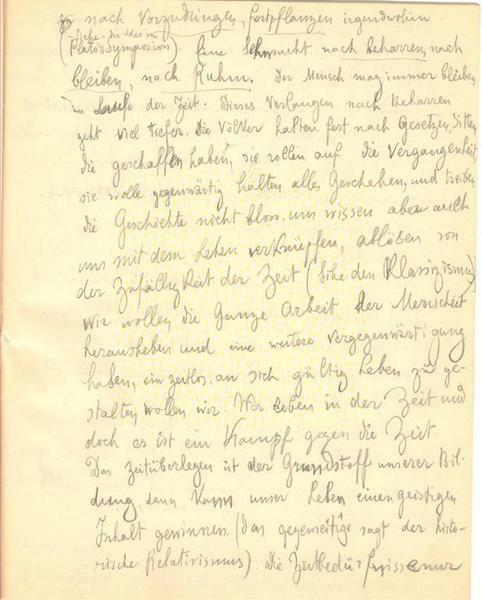 nach Vorzudringen, Fortpflanzen irgendwohin.
(siehe die Idee im
Platos Symposion) Eine Sehnsucht nach beharren, nach
bleiben, nach Ruhm. Der Mensch mag immer bleiben
im Laufe der Zeit. Dieses Verlangen nach Beharren
geht viel tiefer. Die Völker halten fest nach Gesetzen, Sitten
die geschaffen haben, sie rollen auf die Vergangenheit
sie wolle gegenwärtig halten alles Geschehen, und treiben
die Geschichte nicht bloss uns wissen aber auch
uns mit dem Leben verknüpfen, ablösen von
der Zufälligkeit der Zeit (siehe den Klassizismus)
wir wollen die Ganze Arbeit der Menscheit
herausheben und eine weitere vergegenwärtigung
haben, ein zeitlos, an sich gültig Leben zu ge-
stalten wollen wir. Wir leben in der Zeit und
doch es ist ein Kampf gegen die Zeit.
Das zeitüberlegen ist der Grundstoff unserer Bil-
dung, denn kann unser Leben einen geistigen
Inhalt gewinnen. (das gegenseitige sagt der histo-
rische Relativismus). Die Zeitbedürfnisse nur